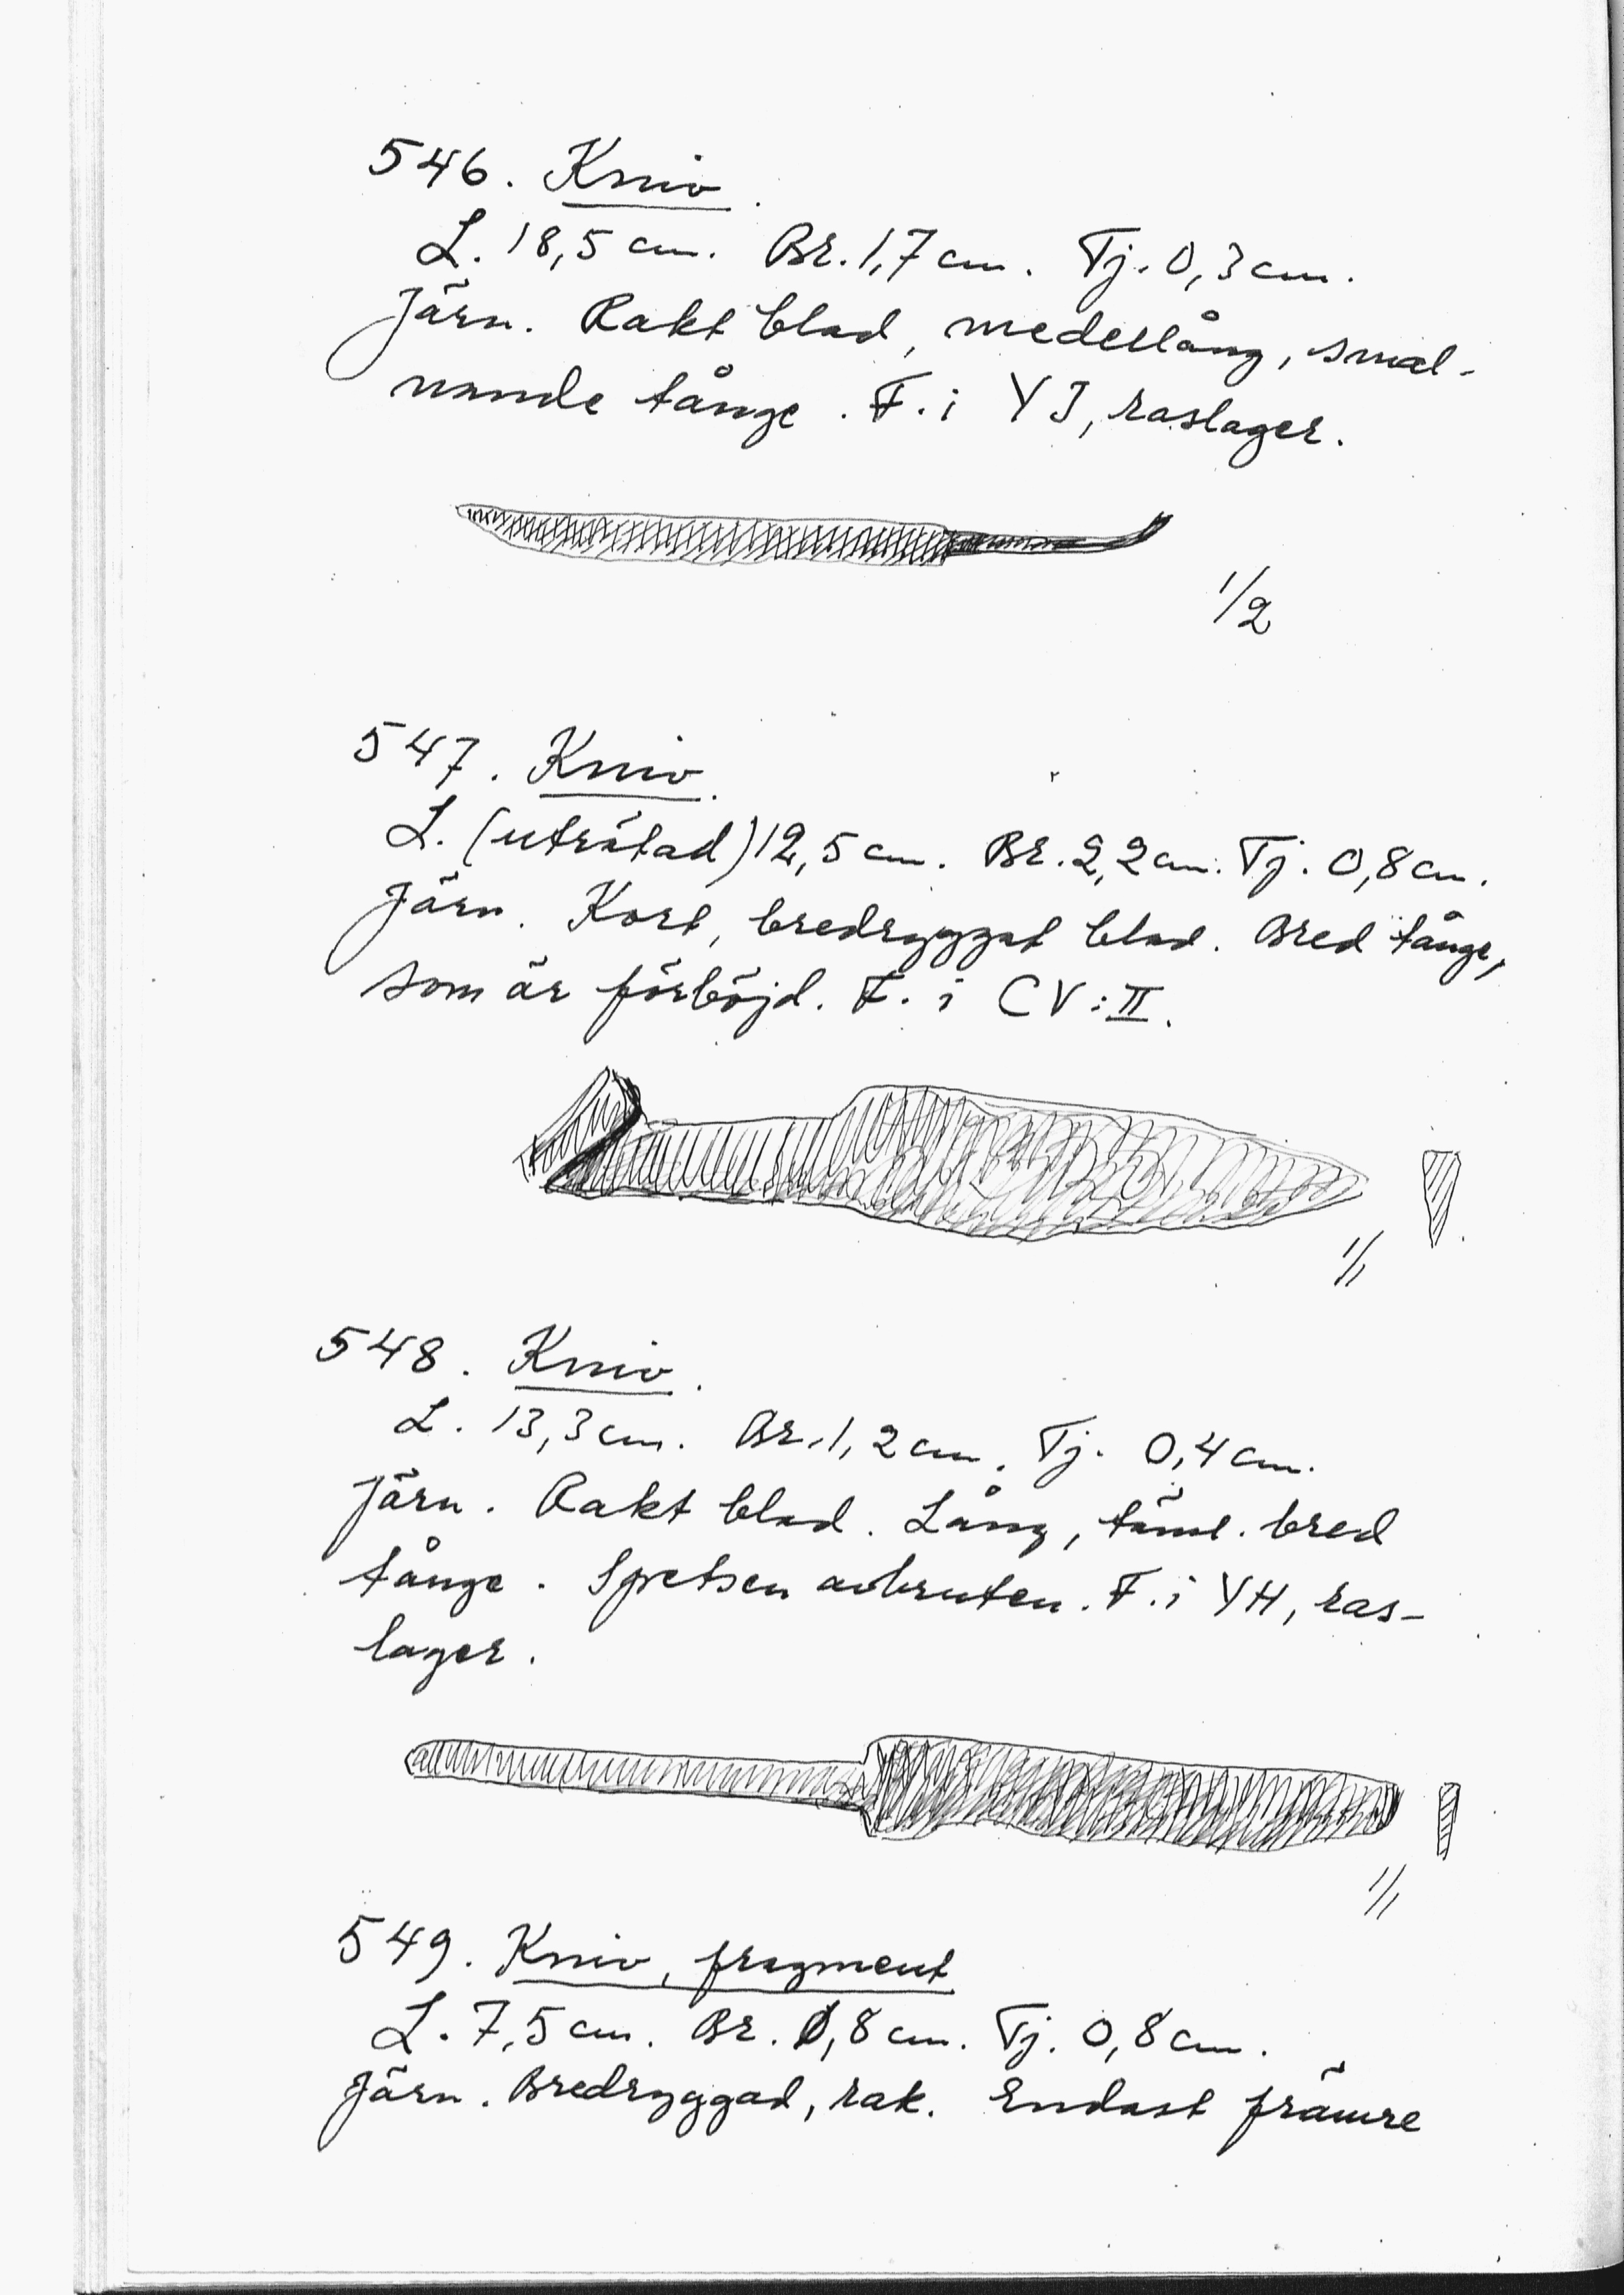 546. Kniv.
L. 18,5 cm. Br. 1,7 cm. Tj. 0,3 cm.
Järn. Rakt blad, medellång, smal-
nande tånge. F. i YJ, raslager.
1/2
547. Kniv.
L. (uträtad) 12,5 cm. Br. 2,2 cm. Tj. 0,8 cm.
Järn. Kort, bredryggat blad. Bred tånge,
som är förböjd. F. i CV:II.
1/1
548. Kniv.
L. 13,3 cm. Br. 1,2 cm. Tj. 0,4 cm.
Järn. Rakt blad. Lång, täml. bred
tånge. Spetsen avbruten. F. i YH, ras-
lager.
1/1
549. Kniv, fragment
L. 7,5 cm. Br. 0,8 cm. Tj. 0,8 cm.
Järn. Bredryggad, rak. Endast främre